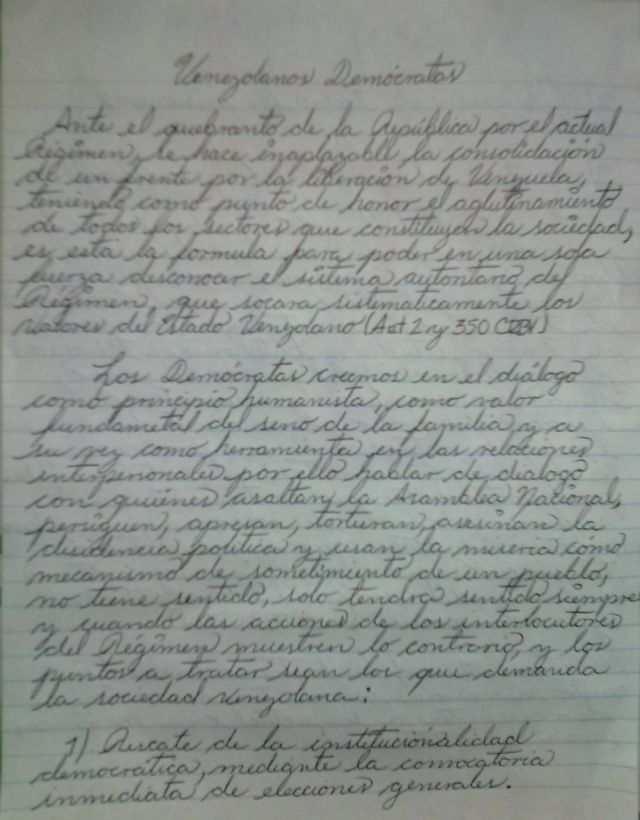 Venezolanos Demócratas
Ante el quebranto de la República por el actual
Régimen, se hace inaplazable la consolidación
de un frente por la liberación de Venezuela,
teniendo como punto de honor el aglutinamiento
de todos los sectores que constituyen la sociedad,
es esta la formula para poder en una sola
fuerza desconocer el sistema autoritario del
Régimen, que socara sistematicamente los
valores del Estado Venezolano (Art 2 y 350 CRBV)
Los Demócratas creemos en el diálogo
como principio humanista, como valor
fundametal del seno de la familia y a
su vez como herramienta en las relaciones
interpersonales por ello hablar de dialogo
con quiénes asaltan la Asamblea Nacional,
persiguen, apresan, torturan, asesinan la
disidencia política y usan la miseria como
mecanismo de sometimiento de un pueblo,
no tiene sentido, solo tendra sentido siempre
y cuando las acciones de los interlocutores
del Régimen muestren lo contrario, y los
puntos a tratar sean los que demanda
la sociedad venezolana:
1) Rescate de la institucionalidad
democrática, mediante la convocatoria
inmediata de elecciones generales.